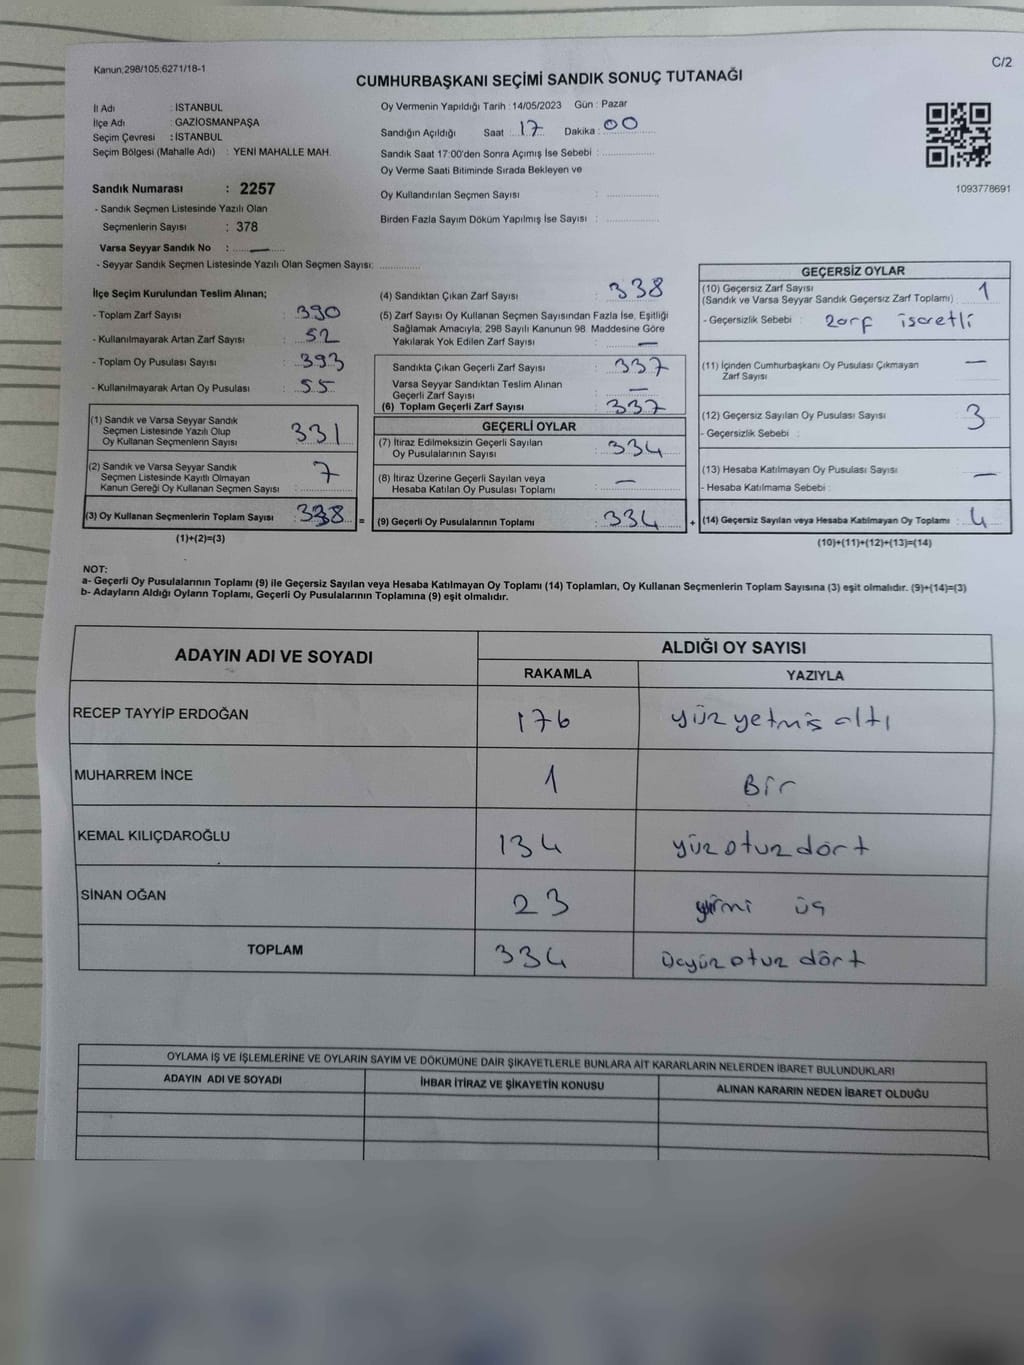 Kanun;298/105;6271/18-1
C/2
CUMHURBAŞKANI SEÇİMİ SANDIK SONUÇ TUTANAĞI
İl Adı : İSTANBUL
İlçe Adı : GAZİOSMANPAŞA
Seçim Çevresi : İSTANBUL
Seçim Bölgesi (Mahalle Adı) : YENİ MAHALLE MAH.
Oy Vermenin Yapıldığı Tarih : 14/05/2023 Gün : Pazar
Sandığın Açıldığı Saat : 17 Dakika : 00
Sandık Saat 17:00'den Sonra Açımış İse Sebebi :
Oy Verme Saati Bitiminde Sırada Bekleyen ve
Oy Kullandırılan Seçmen Sayısı :
Birden Fazla Sayım Döküm Yapılmış İse Sayısı :
1093778691
Sandık Numarası : 2257
- Sandık Seçmen Listesinde Yazılı Olan
Seçmenlerin Sayısı : 378
Varsa Seyyar Sandık No : —
- Seyyar Sandık Seçmen Listesinde Yazılı Olan Seçmen Sayısı:
İlçe Seçim Kurulundan Teslim Alınan;
- Toplam Zarf Sayısı : 390
- Kullanılmayarak Artan Zarf Sayısı : 52
- Toplam Oy Pusulası Sayısı : 393
- Kullanılmayarak Artan Oy Pusulası : 55
(1) Sandık ve Varsa Seyyar Sandık
Seçmen Listesinde Yazılı Olup
Oy Kullanan Seçmenlerin Sayısı 331
(2) Sandık ve Varsa Seyyar Sandık
Seçmen Listesinde Kayıtlı Olmayan
Kanun Gereği Oy Kullanan Seçmen Sayısı : 7
(3) Oy Kullanan Seçmenlerin Toplam Sayısı : 338 =
(1)+(2)=(3)
(4) Sandıktan Çıkan Zarf Sayısı : 338
(5) Zarf Sayısı Oy Kullanan Seçmen Sayısından Fazla İse, Eşitliği
Sağlamak Amacıyla, 298 Sayılı Kanunun 98. Maddesine Göre
Yakılarak Yok Edilen Zarf Sayısı : —
Sandıkta Çıkan Geçerli Zarf Sayısı : 337
Varsa Seyyar Sandıktan Teslim Alınan
Geçerli Zarf Sayısı : —
(6) Toplam Geçerli Zarf Sayısı : 337
GEÇERLİ OYLAR
(7) İtiraz Edilmeksizin Geçerli Sayılan
Oy Pusulalarının Sayısı : 334
(8) İtiraz Üzerine Geçerli Sayılan veya
Hesaba Katılan Oy Pusulası Toplamı : —
(9) Geçerli Oy Pusulalarının Toplamı : 334 +
GEÇERSİZ OYLAR
(10) Geçersiz Zarf Sayısı
(Sandık ve Varsa Seyyar Sandık Geçersiz Zarf Toplamı) : 1
- Geçersizlik Sebebi : zarf işaretli
(11) İçinden Cumhurbaşkanı Oy Pusulası Çıkmayan
Zarf Sayısı —
(12) Geçersiz Sayılan Oy Pusulası Sayısı 3
- Geçersizlik Sebebi :
(13) Hesaba Katılmayan Oy Pusulası Sayısı —
- Hesaba Katılmama Sebebi :
(14) Geçersiz Sayılan veya Hesaba Katılmayan Oy Toplamı : 4
(10)+(11)+(12)+(13)=(14)
NOT:
a- Geçerli Oy Pusulalarının Toplamı (9) ile Geçersiz Sayılan veya Hesaba Katılmayan Oy Toplamı (14) Toplamları, Oy Kullanan Seçmenlerin Toplam Sayısına (3) eşit olmalıdır. (9)+(14)=(3)
b- Adayların Aldığı Oyların Toplamı, Geçerli Oy Pusulalarının Toplamına (9) eşit olmalıdır.
ADAYIN ADI VE SOYADI
ALDIĞI OY SAYISI
RAKAMLA YAZIYLA
RECEP TAYYİP ERDOĞAN 176 yüz yetmiş altı
MUHARREM İNCE 1 Bir
KEMAL KILIÇDAROĞLU 134 yüz otuz dört
SİNAN OĞAN 23 yirmi üç
TOPLAM 334 üçyüz otuz dört
OYLAMA İŞ VE İŞLEMLERİNE VE OYLARIN SAYIM VE DÖKÜMÜNE DAİR ŞİKAYETLERLE BUNLARA AİT KARARLARIN NELERDEN İBARET BULUNDUKLARI
ADAYIN ADI VE SOYADI İHBAR İTİRAZ VE ŞİKAYETİN KONUSU ALINAN KARARIN NEDEN İBARET OLDUĞU